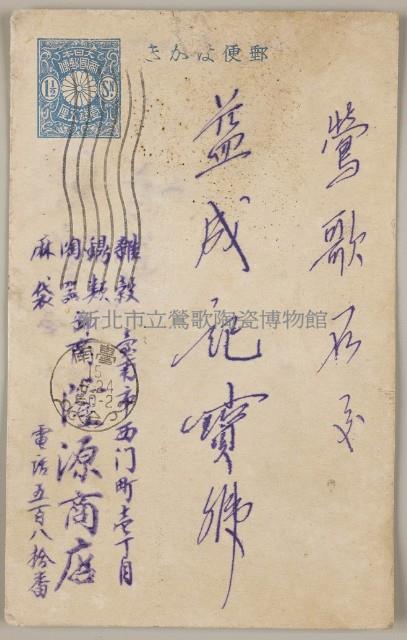 郵便はがき
大日本帝國郵便
1½ Sn
鶯歌石
益成記寶號
雜穀
錫類
陶器
麻袋
臺南市西門町壱丁目
隆源商店
電話五百八拾番
臺南
15
新北市立鶯歌陶瓷博物館